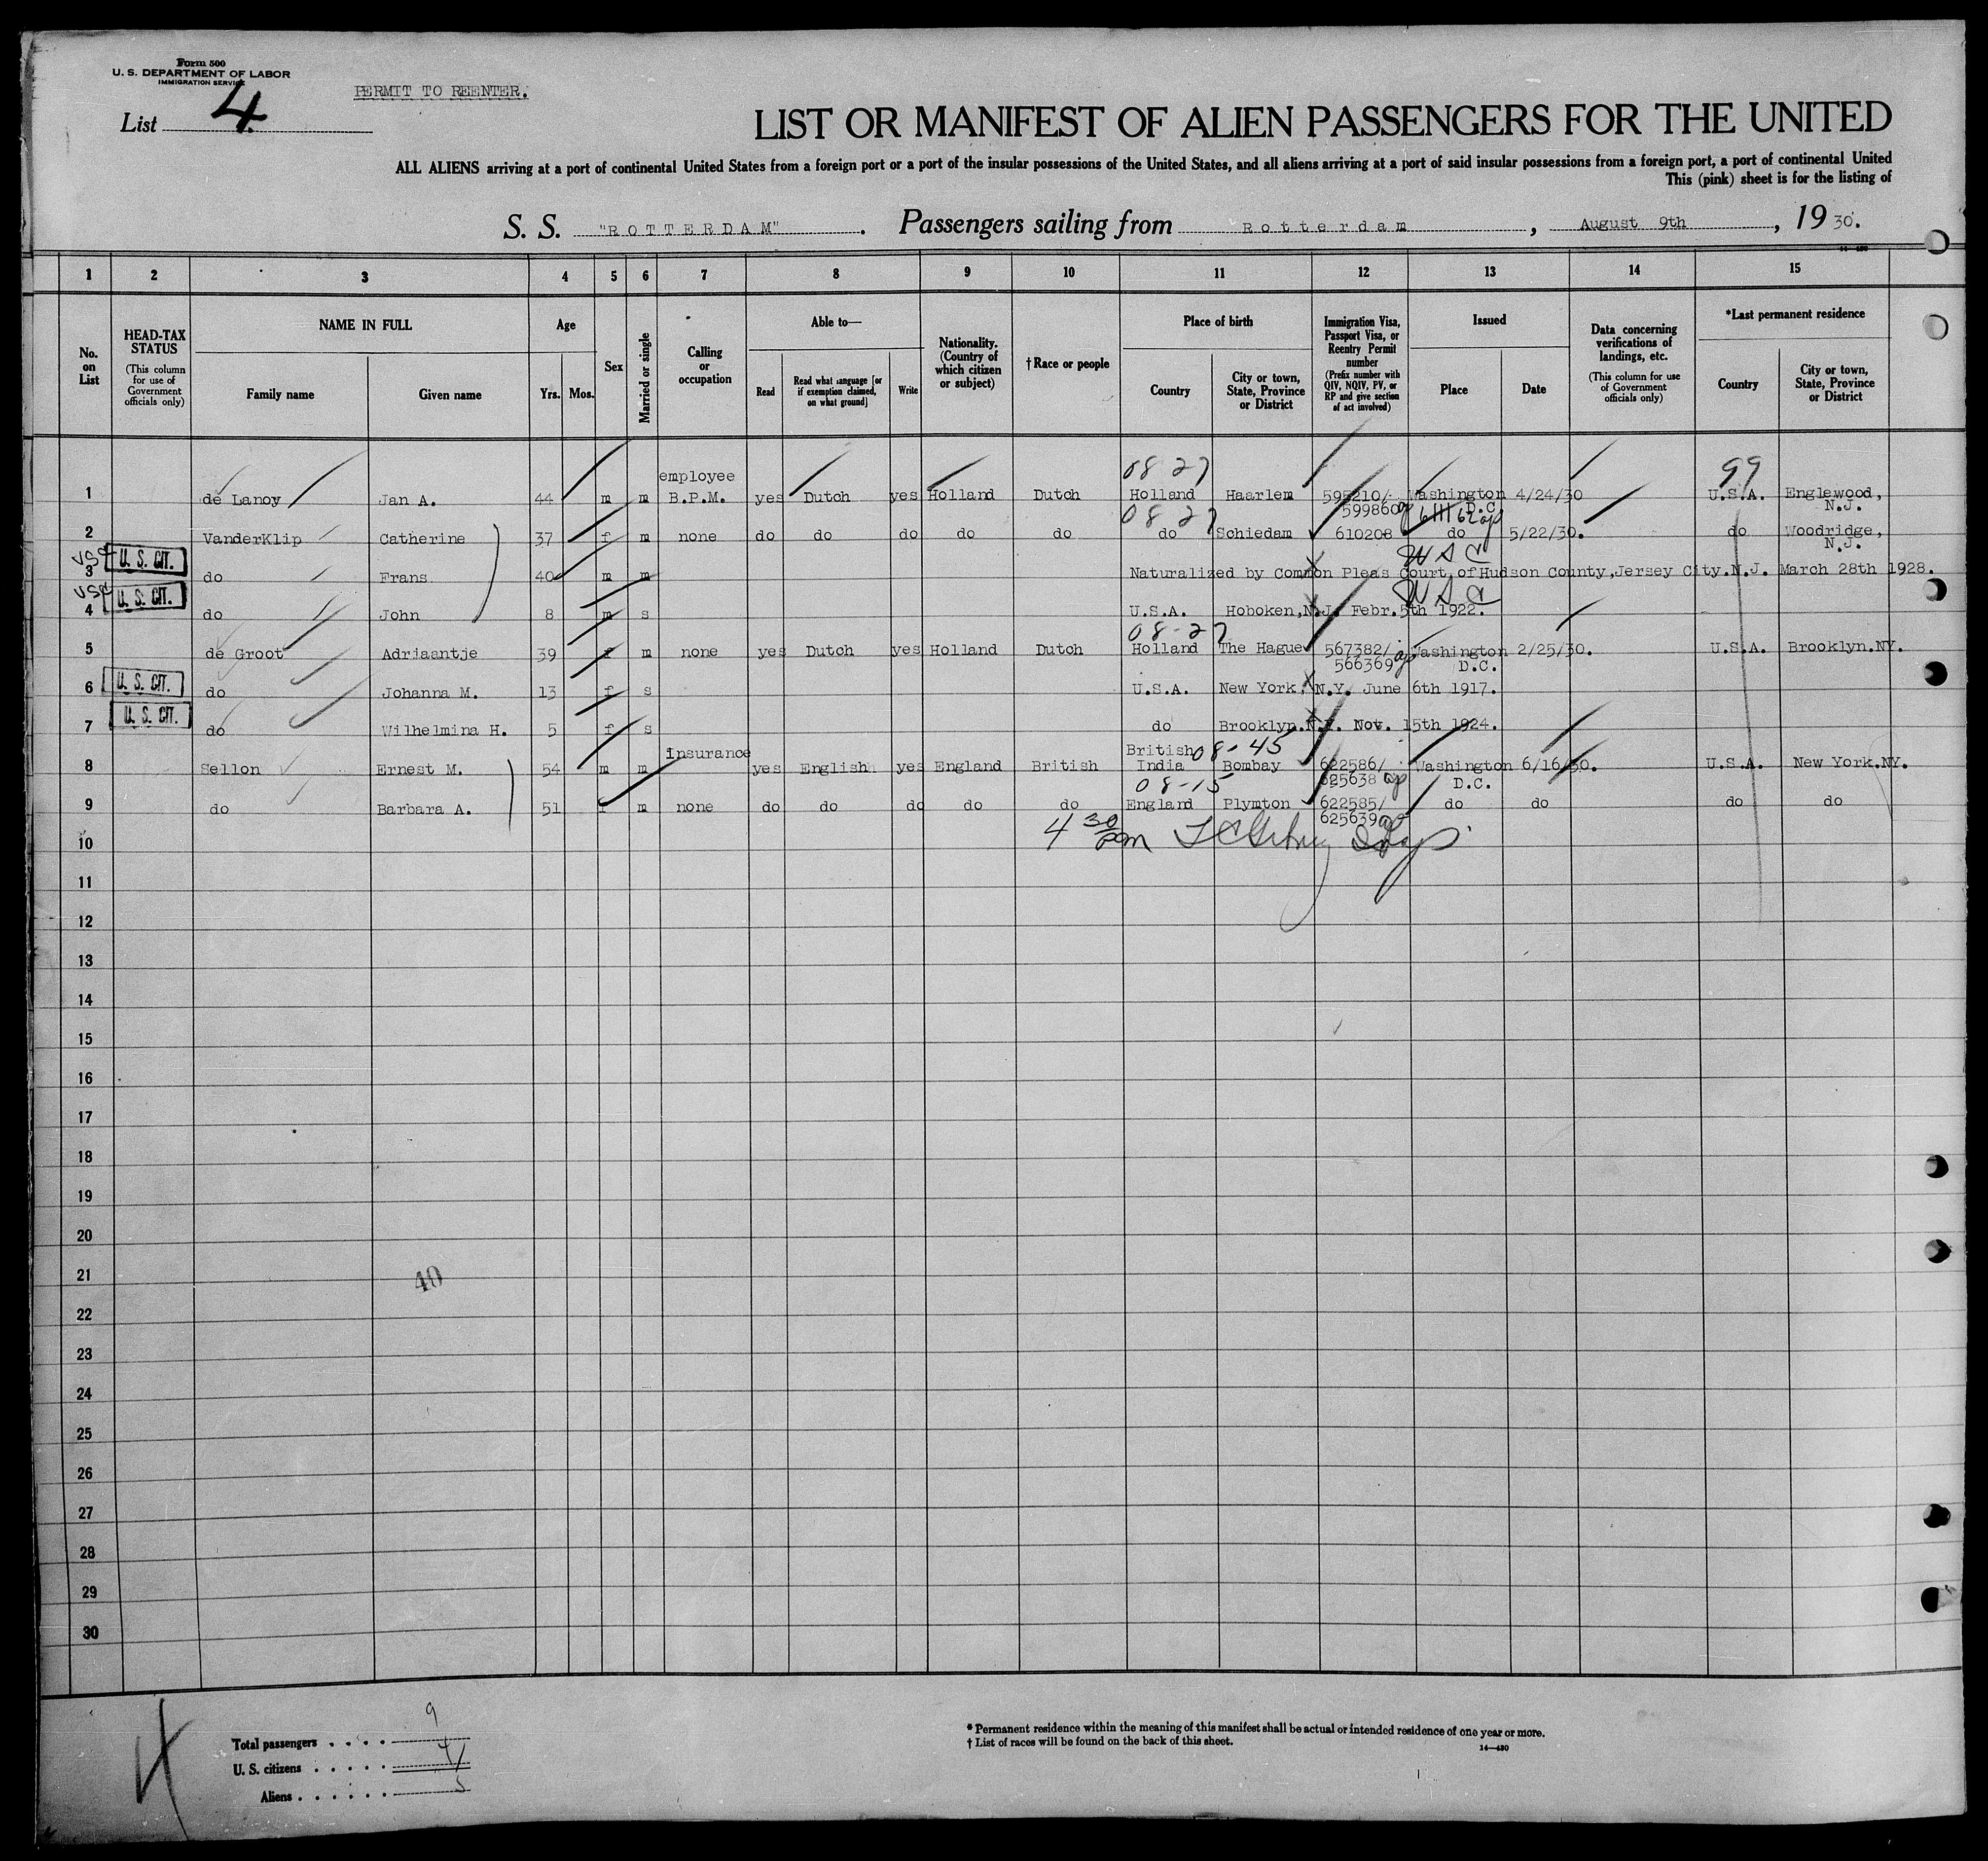 Form 500
U. S. DEPARTMENT OF LABOR
IMMIGRATION SERVICE
PERMIT TO REENTER.
List 4
LIST OR MANIFEST OF ALIEN PASSENGERS FOR THE UNITED
ALL ALIENS arriving at a port of continental United States from a foreign port or a port of the insular possessions of the United States, and all aliens arriving at a port of said insular possessions from a foreign port, a port of continental United
This (pink) sheet is for the listing of
S. S. "ROTTERDAM". Passengers sailing from Rotterdam, August 9th, 1930.
1 2 3 4 5 6 7 8 9 10 11 12 13 14 15
No. on List
HEAD-TAX STATUS (This column for use of Government officials only)
NAME IN FULL
Family name Given name
Age
Yrs. Mos.
Sex
Married or single
Calling or occupation
Able to—
Read
Read what language [or if exemption claimed, on what ground]
Write
Nationality. (Country of which citizen or subject)
† Race or people
Place of birth
Country
City or town, State, Province or District
Immigration Visa, Passport Visa, or Reentry Permit number (Prefix number with QIV, NQIV, PV, or RP and give section of act involved)
Issued
Place Date
Data concerning verifications of landings, etc. (This column for use of Government officials only)
*Last permanent residence
Country
City or town, State, Province or District
employee 08 27 99
1 de Lanoy Jan A. 44 m m B.P.M. yes Dutch yes Holland Dutch Holland Haarlem 595210/ Washington 4/24/30 U.S.A. Englewood,
599860 D.C. N.J.
08 27
2 VanderKlip Catherine 37 f m none do do do do do do Schiedam 610208 do 5/22/30. do Woodridge,
N.J.
U. S. CIT.
3 do Frans 40 m m Naturalized by Common Pleas Court of Hudson County, Jersey City. N.J. March 28th 1928.
U. S. CIT.
4 do John 8 m s U.S.A. Hoboken, N.J. Febr. 5th 1922.
08-27
5 de Groot Adriaantje 39 f m none yes Dutch yes Holland Dutch Holland The Hague 567382/ Washington 2/25/30. U.S.A. Brooklyn.NY.
566369 D.C.
U. S. CIT.
6 do Johanna M. 13 f s U.S.A. New York. N.Y. June 6th 1917.
U. S. CIT.
7 do Wilhelmina H. 5 f s do Brooklyn. N.Y. Nov. 15th 1924.
insurance British 08-45
8 Sellon Ernest M. 54 m m yes English yes England British India Bombay 622586/ Washington 6/16/30. U.S.A. New York.NY.
625638 D.C.
08-15
9 do Barbara A. 51 f m none do do do do do England Plymton 622585/ do do do do
625639
4 30 pm
10
11
12
13
14
15
16
17
18
19
20
21
40
22
23
24
25
26
27
28
29
30
Total passengers 9
U. S. citizens 4
Aliens 5
* Permanent residence within the meaning of this manifest shall be actual or intended residence of one year or more.
† List of races will be found on the back of this sheet.
14—430